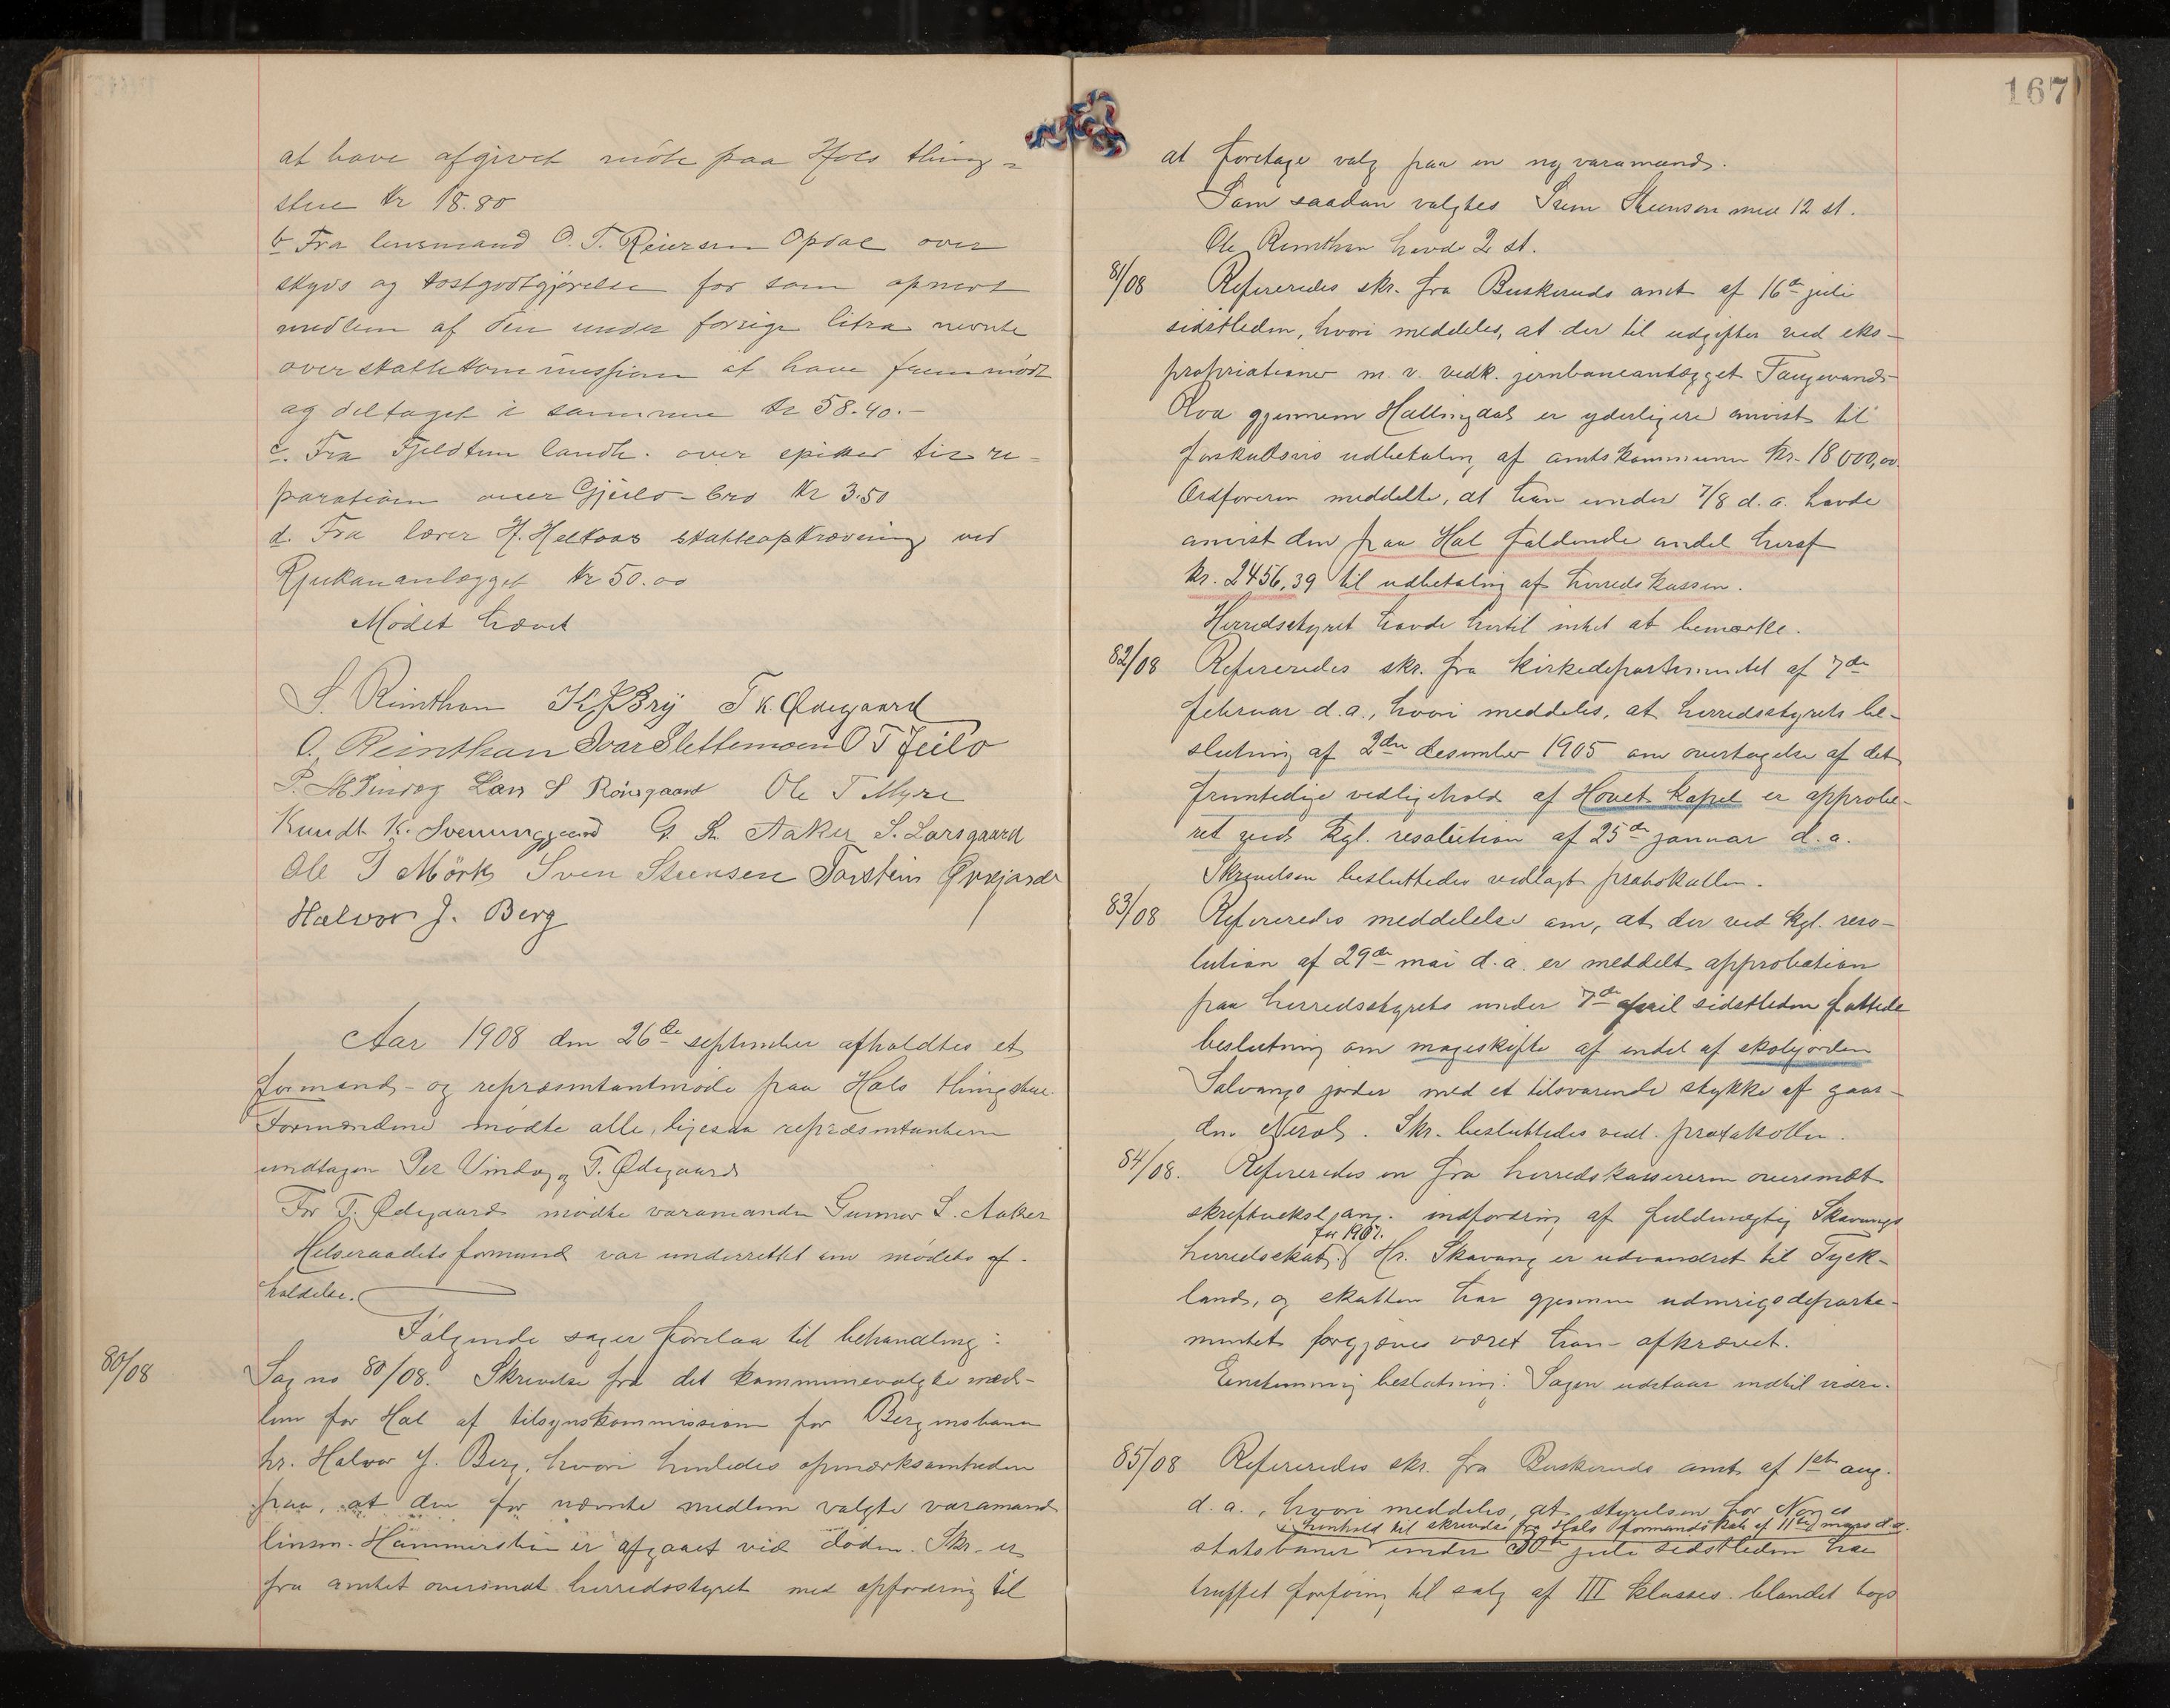 at have afgivet møde paa Hols thing=
stue Kr 18.80
b Fra lensmand O. T. Reiersen Opdal over
skyds og kostgodtgjørelse for som opnevt
medlem af den under forrige litra nevnte
overskattekommission at have fremmødt
og deltaget i samme Kr 58.40.-
c. Fra Fjeldtun landh. over spiker til re=
paration over Gjeilo-bro Kr 3.50
d. Fra lærer H. Heltaas skatteopkrævning ved
Rjukananlægget Kr 50.00
Mødet hævet
S. Reinthon K K Bry T K. Ødegaard
O. Reinthon Ivar Slettemoen O T Jeilo
P. A Vindeg Lars S Rønsgaard Ole T Myre
Knudt K. Svenunggaard G. L. Aaker S. Larsgaard
Ole T Mørk Sven Steensen Torstein
Halvor J. Berg
Aar 1908 den 26de september afholdtes et
formand- og repræsentantmøde paa Hols thingstue.
Formændene mødte alle, ligesaa repræsentanterne
undtagen Per Vindeg og T. Ødegaard
For T. Ødegaard mødte varamanden Gunnar L. Aaker
Helseraadets formand var underrettet om mødets af-
holdelse.
Følgende sager forelaa til behandling:
80/08
Sag no 80/08. Skrivelse fra det kommunevalgte med-
lem for Hol af tilsynskommissionen for Bergensbanen
hr. Halvor J. Berg, hvori henledes opmærksomheden
paa, at den for nævnte medlem valgte varamand
linsm. Hammersbøen er afgaaet ved døden. Skr. er
fra amtet oversendt herredsstyret med opfordring til
167
at foretage valg paa en ny varamand.
Som saadan valgtes Sven Steensen med 12 st.
Ole Reinthon havde 2 st.
81/08 Refereredes skr. fra Buskeruds amt af 16de juli
sidstleden, hvori meddeles, at der til udgifter ved eks-
propriationer m. v. vedk. jernbaneanlægget Taugevand-
Roa gjennem Hallingdal er yderligere anvist til
forskudsvis udbetaling af amtskommunen kr. 18 000,00.
Ordføreren meddelte, at han under 7/8 d. a. havde
anvist den paa Hol faldende andel heraf
kr. 2456,39 til udbetaling af herredskassen.
Herredsstyret havde hertil intet at bemærke.
82/08 Refereredes skr. fra kirkedepartementet af 7de
februar d.a., hvori meddeles, at herredsstyrets be-
slutning af 2den desember 1905 om overtagelse af det
fremtidige vedligehold af Hovet kapel er approbe-
ret ved kgl. resolution af 25de januar d. a.
Skrivelsen besluttedes vedlagt protokollen.
83/08 Refereredes meddelelse om, at der ved kgl. reso-
lution af 29de mai d. a. er meddelt approbation
paa herredsstyrets under 7de april sidstleden fattede
beslutning om mageskifte af endel af skolejorden
Solvangs jorder med et tilsvarende stykke af gaar-
den Nerol. Skr. besluttedes vedl. protokollen.
84/08. Refereredes en fra herredskassereren oversendt
skriftveksl. ang. indfordring af fuldmægtig Skavangs
for 1907.
herredsskat. Hr. Skavang er udvandret til Tysk-
land, og skatten har gjennem udenrigsdeparte-
mentet forgjæves været ham afkrævet.
Enstemmig beslutning: Sagen udstaar indtil videre.
85/08 Refereredes skr. fra Buskeruds amt af 1ste aug.
d. a., hvori meddeles, at styrelsen for Norges
i henhold til skrivelse fra Hols formandskab af 11te mars d. a.
statsbaner under 30te juli sidstleden har
truffet forføining til salg af III klasses blandet togs